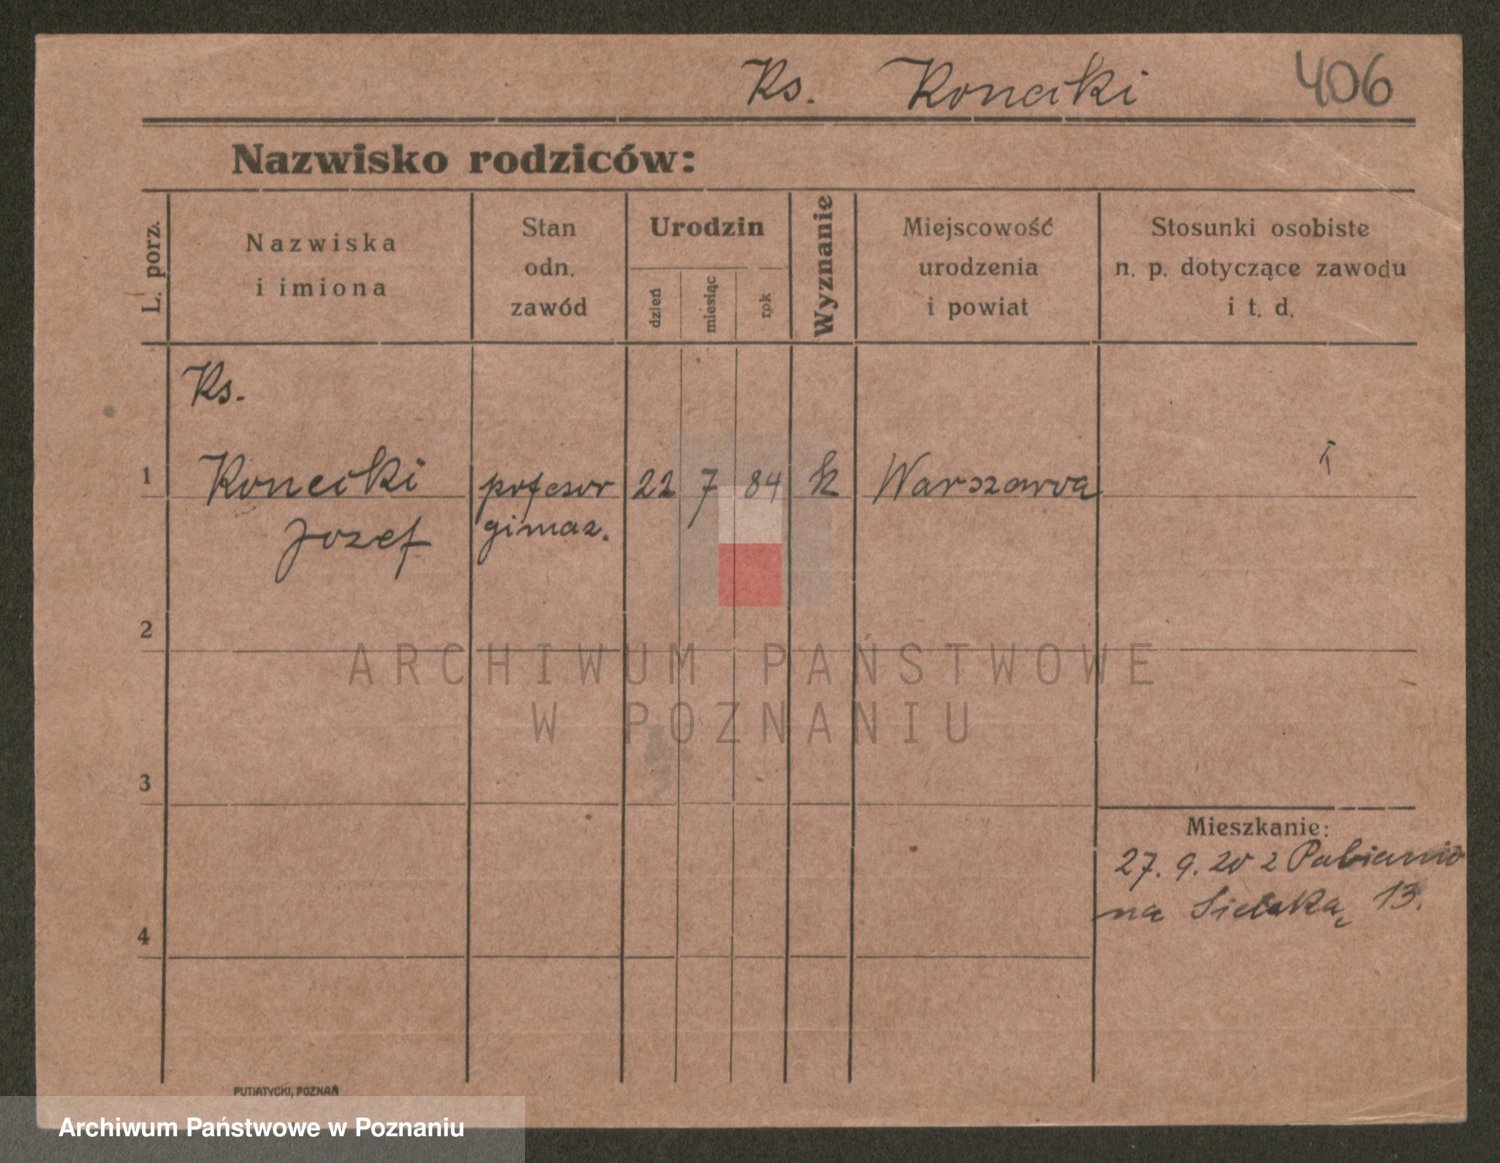 Ks. Konecki 406
Nazwisko rodziców:
L. porz.
Nazwiska
i imiona
Stan
odn.
zawód
Urodzin
dzień
miesiąc
rok
Wyznanie
Miejscowość
urodzenia
i powiat
Stosunki osobiste
n. p. dotyczące zawodu
i t. d.
Ks.
1 Konecki profesor 22 7 84 k Warszawa
Jozef gimaz.
2
ARCHIWUM PAŃSTWOWE
W POZNANIU
3
Mieszkanie:
27. 9. 20 z Pabianic
na 13.
4
PUTIATYCKI, POZNAŃ
Archiwum Państwowe w Poznaniu